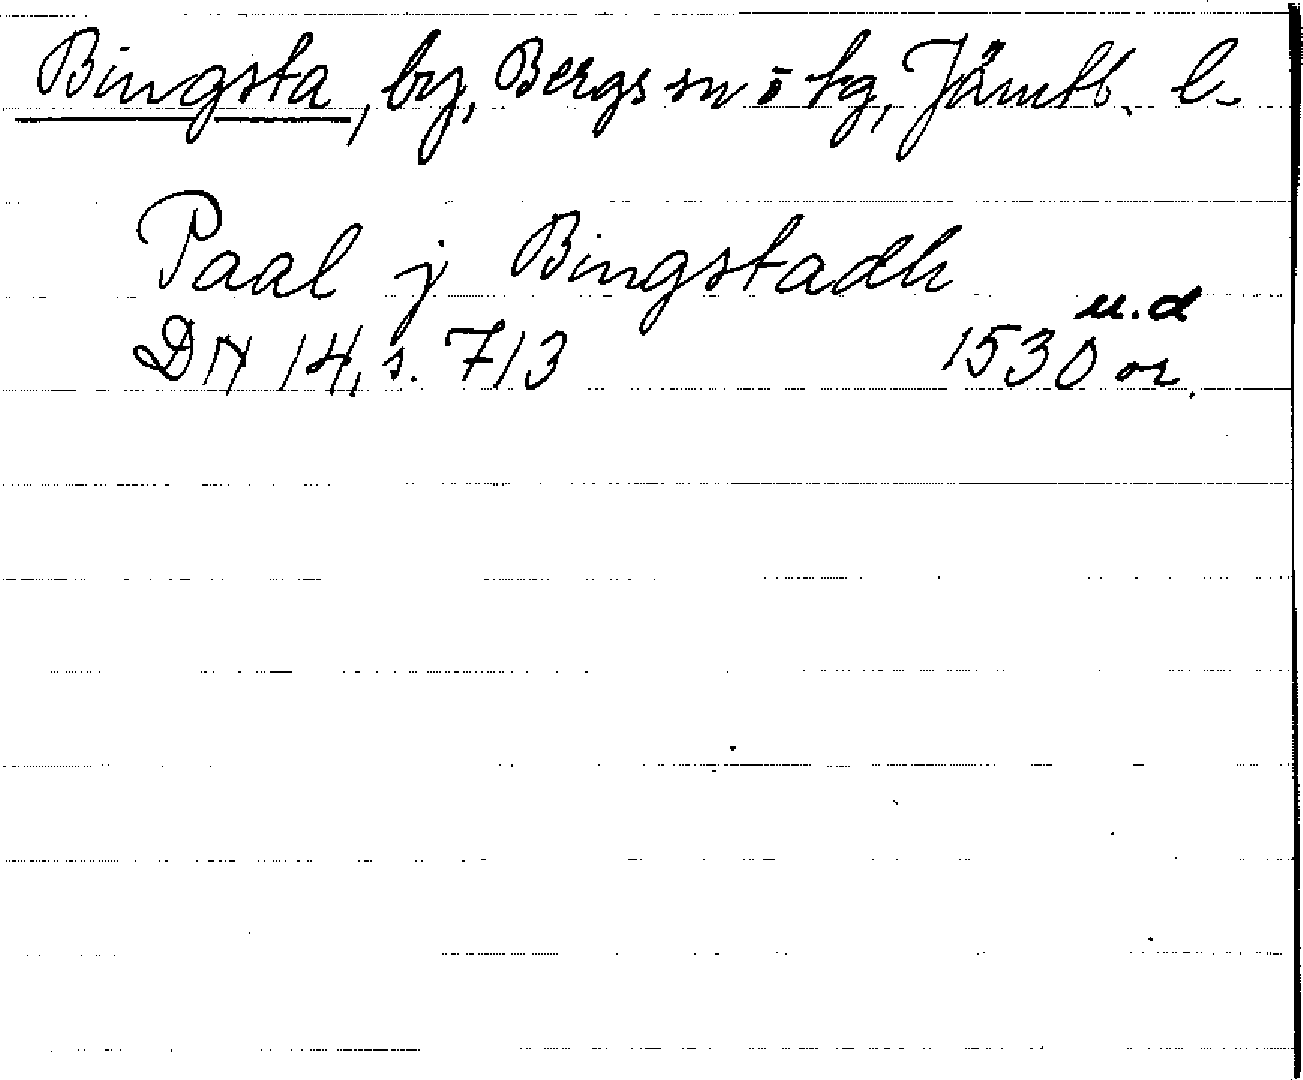 Bingsta, by, Bergs sn o tg, Jämtl. l.
Paal j Bingstadh
u.d
DN 14, s. 713 1530 or.